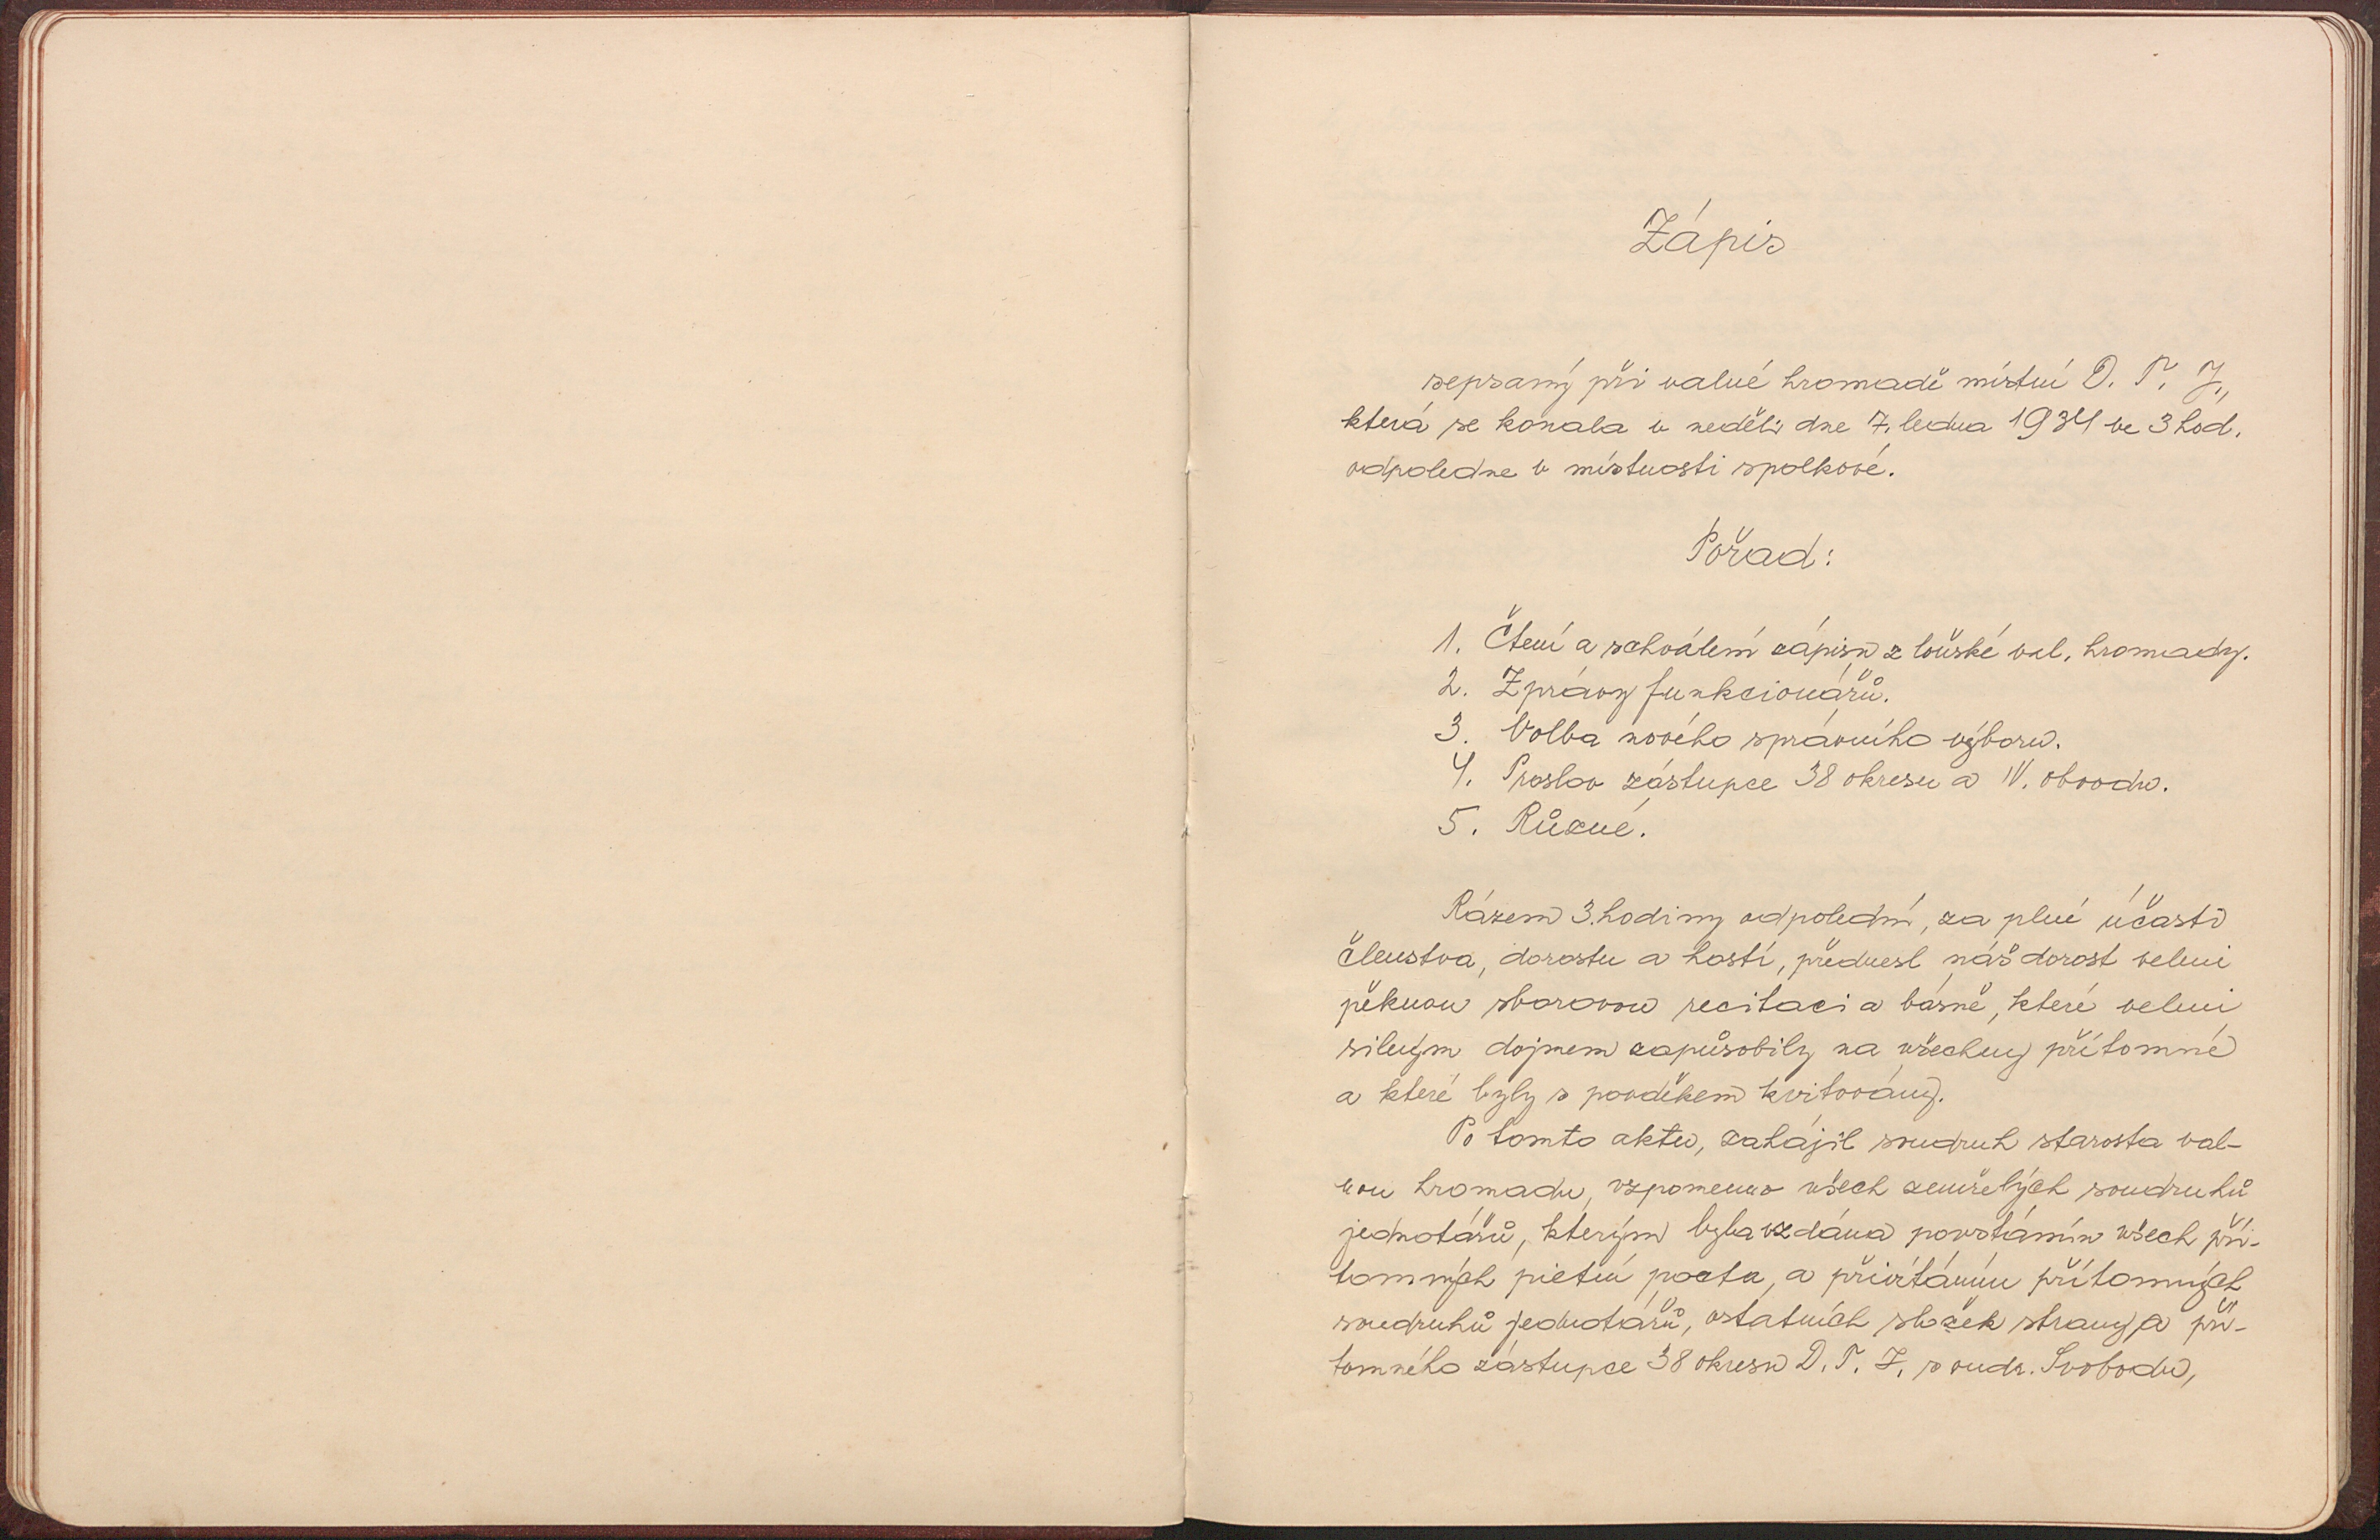 Zápis
sepsaný při valné hromadě místní D. T. J.,
která se konala v neděli dne 7. ledna 1934 ve 3 hod.
odpoledne v místnosti spolkové.
Pořad:
1. Čtení a schválení zápisu z loňské val. hromady.
2. Zprávy funkcionářů.
3. Volba nového správního výboru.
4. Proslov zástupce 38 okresu a IV. obvodu.
5. Různé.
Rázem 3. hodiny odpolední, za plné účasti
členstva, dorostu a hostí, přednesl náš dorost velmi
pěknou sborovou recitaci a básně, které velmi
silným dojmem zapůsobily na všechny přítomné
a které byly s povděkem kvitovány.
Po tomto aktu, zahájil soudruh starosta val-
nou hromadu, vzpomenuv všech zemřelých soudruhů
jednotářů, kterým byla vzdána povstáním všech pří-
tomných pietní pocta, a přivítáním přítomných
soudruhů jednotářů, ostatních složek strany a pří-
tomného zástupce 38 okresu D. T. J. soudr. Svobodu,